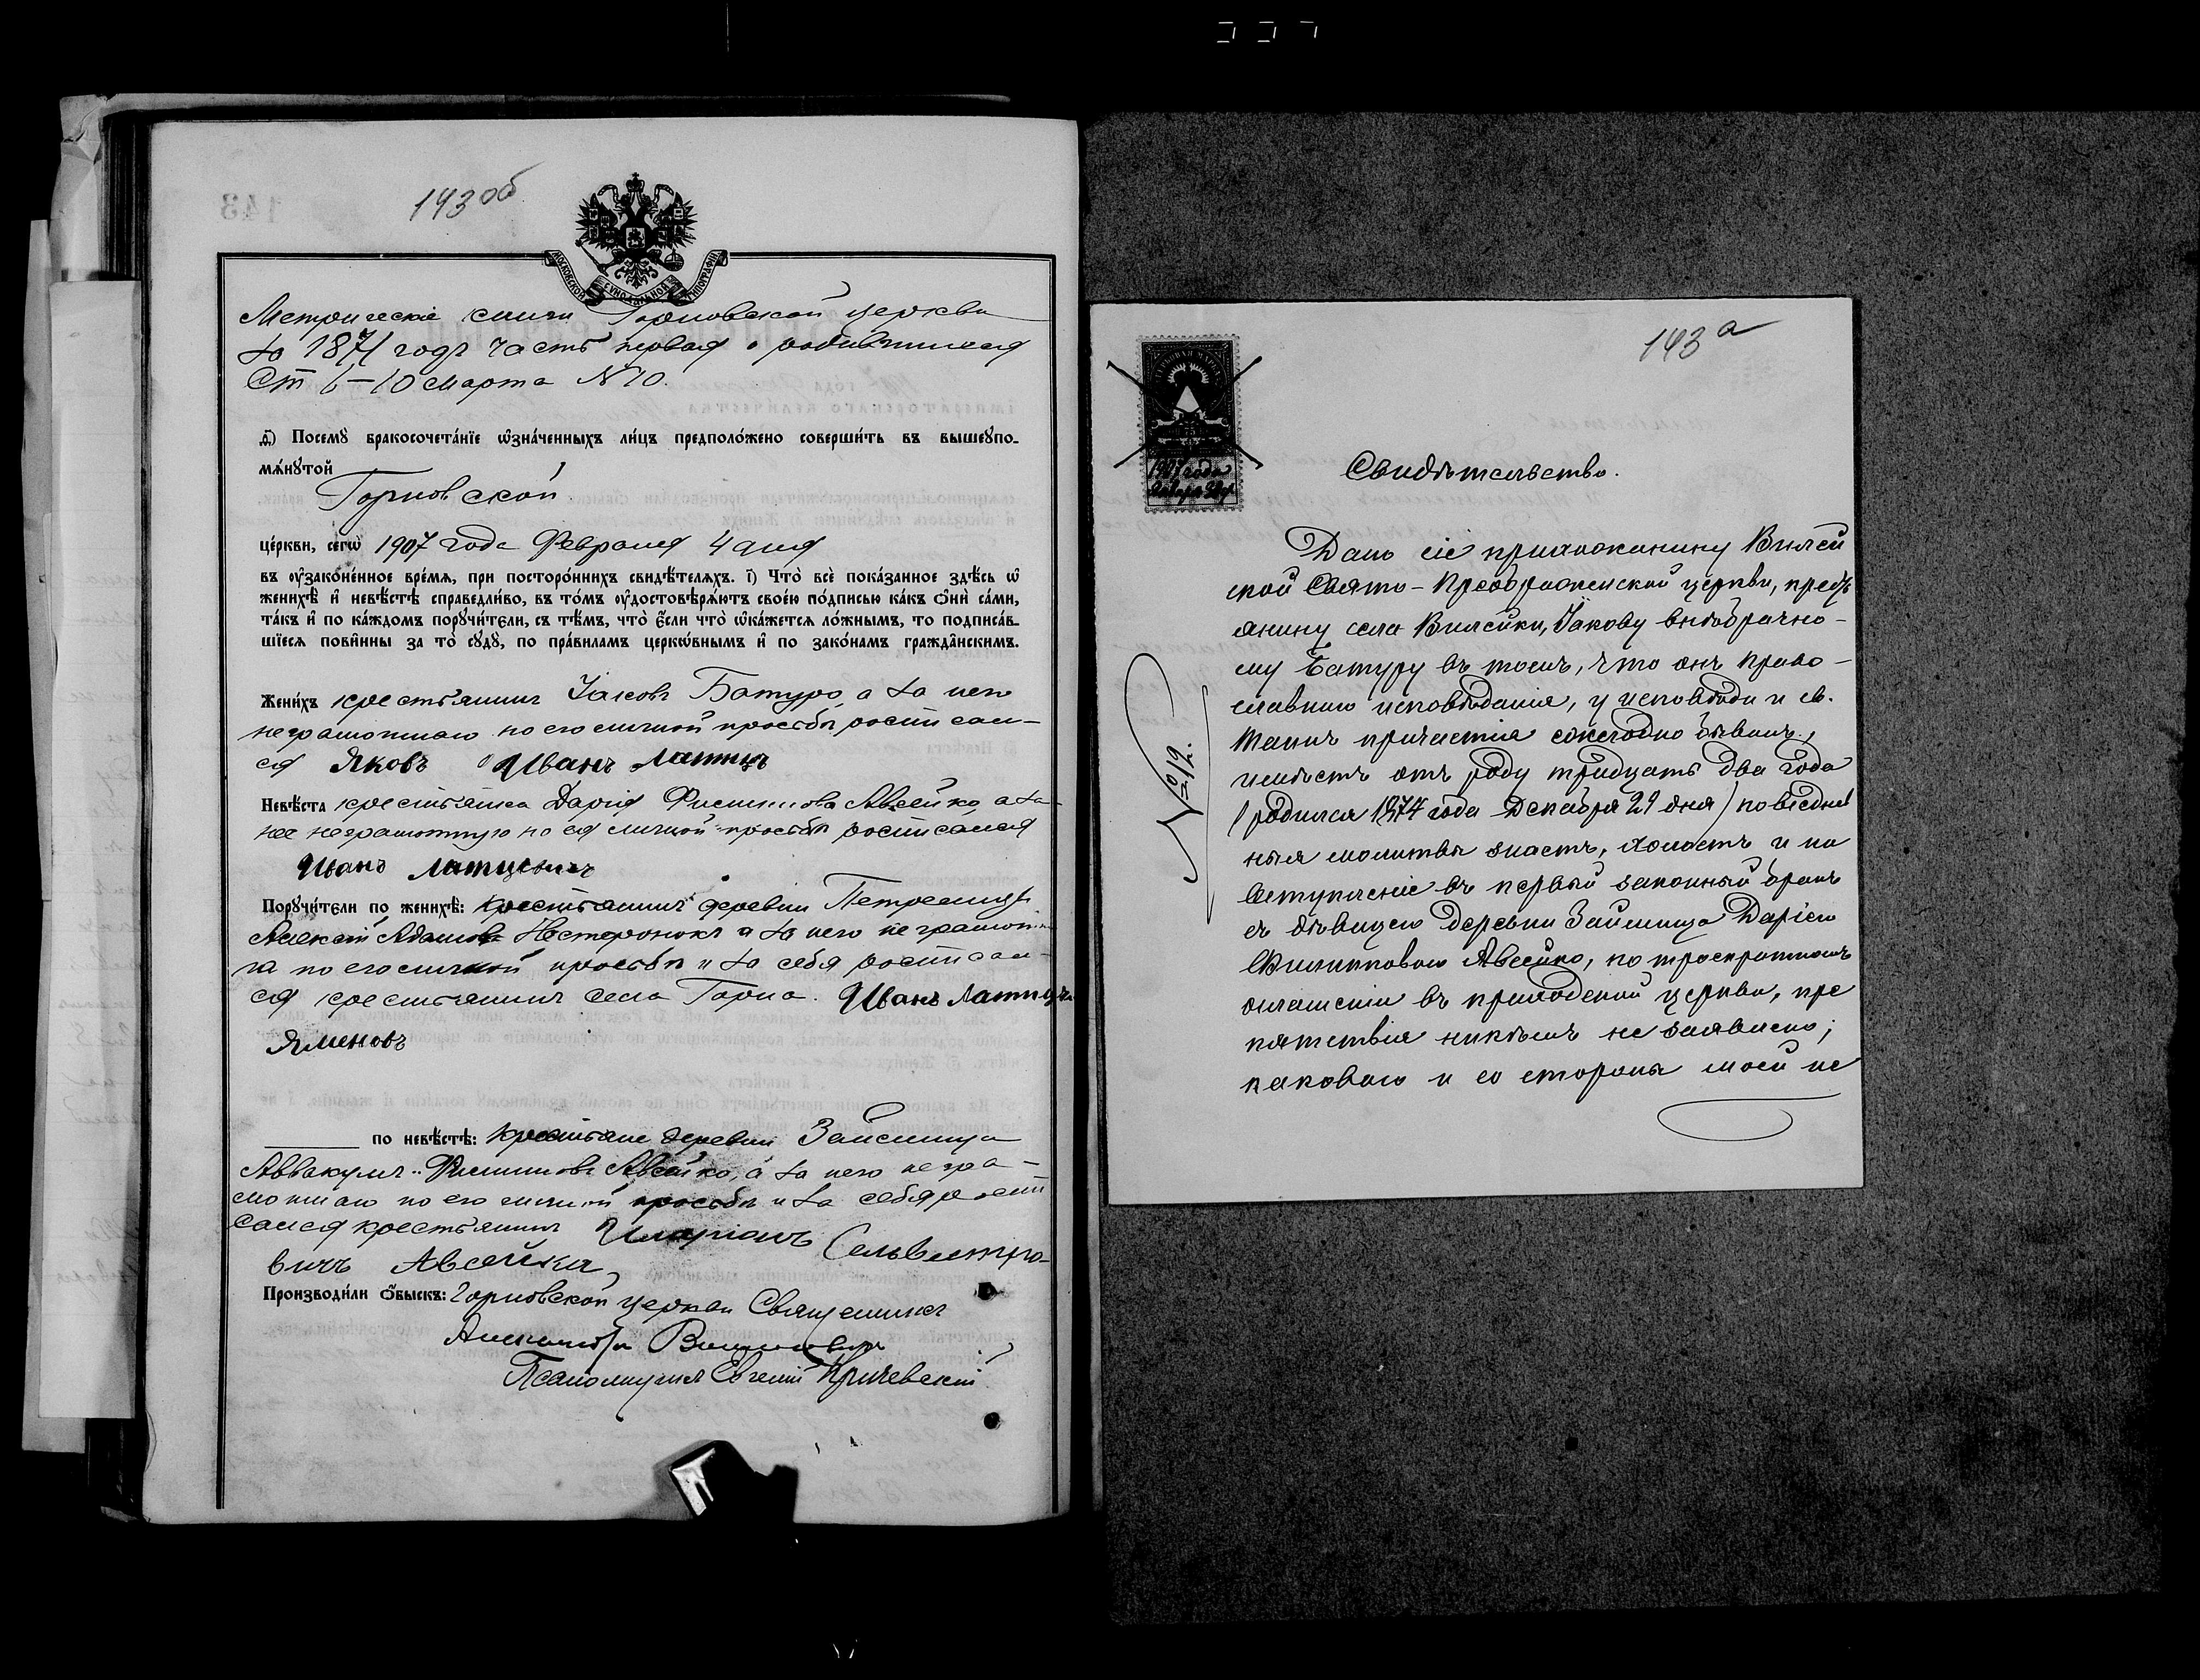 143 об
Метрическіе книги Горновской церкви
за 1871 годъ часть первая о родившихся
Ст 6–10 Марта №10.
д҃і) Посемꙋ̀ бракосочета́нїе ѡ҆зна́ченныхъ ли́цъ предположено соверши́ть въ вышеꙋпо-
мѧ́нꙋтой
Горновской
це́ркви, сегѡ̀ 1907 года Февраля 4 дня
въ ᲂу҆зако́ненное вре́мѧ, при посторо́ннихъ свидѣ́телѧхъ. і҃) Что̀ всѐ пока́занное здѣ́сь ѡ҆
женихѣ̀ и҆ невѣ́стѣ справедли́во, въ то́мъ ᲂу҆достовѣрѧ́ютъ свое́ю по́дписью ка́къ ѻ҆нѝ са́ми,
та́къ и҆ по ка́ждомъ порꙋчи́тели, съ тѣ́мъ, что̀ є҆́сли что̀ ѡ҆ка́жетсѧ ло́жнымъ, то подписа́в-
шїесѧ пови́нны за то̀ сꙋдꙋ̀, по пра́виламъ церко́внымъ и҆ по зако́намъ гражда́нскимъ.
Жени́хъ крестьянинъ Іаковъ Батура, а за него
неграмотнаго по его личной просьбѣ росписал-
ся Яковъ Иванъ Латыш
Невѣ́ста крестьянка Дарія Филиппова Авсейко, а за
нее неграмотную по ея личной просьбѣ росписался
Иванъ
Порꙋчи́тели по женихѣ̀: крестьянинъ деревни
Алексѣй Адамовъ Нестеронокъ а за него неграмотна
го по его личной просьбѣ и за себя росписал-
ся крестьянинъ села Горна. Иванъ
по невѣ́стѣ: крестьяне деревни Займища
Аввакумъ Филипповъ Авсейко, а за него негра-
мотнаго по его личной просьбѣ и за себя роспи
сался крестьянинъ Иларіонъ Сельвестро-
вичъ Авсейка
Производи́ли ѻ҆́быскъ: Горновской церкви Священникъ
Псаломщикъ Евгеній Кричевскій
143 а
1907 года
Свидѣтельство.
Дано сіе прихожанину Вилей
ской Свято-Преображенской церкви, крестья
янину села Вилейки, Іакову внѣбрачно-
му Батуру въ томъ, что онъ право-
славнаго исповѣданія, у исповѣди и св.
Таинъ причастія ежегодно бывалъ,
имѣетъ отъ роду тридцать два года
(родился 1874 года Декабря 29 дня) повседнев
ныя молитвы знаетъ, холостъ и на
вступленіе въ первый законный бракъ
съ дѣвицею деревни Займища Даріею
Филипповою Авсейко, по троекратномъ
оглашеніи въ приходской церкви, пре
пятствія никѣмъ не заявлено;
каковаго и со стороны моей не
№12.